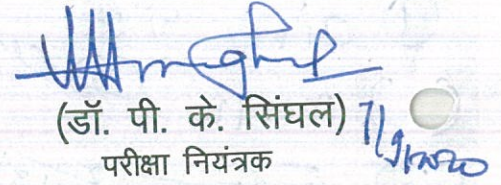 (डॉ. पी. के. सिंघल) 7/9/2020
परीक्षा नियंत्रक